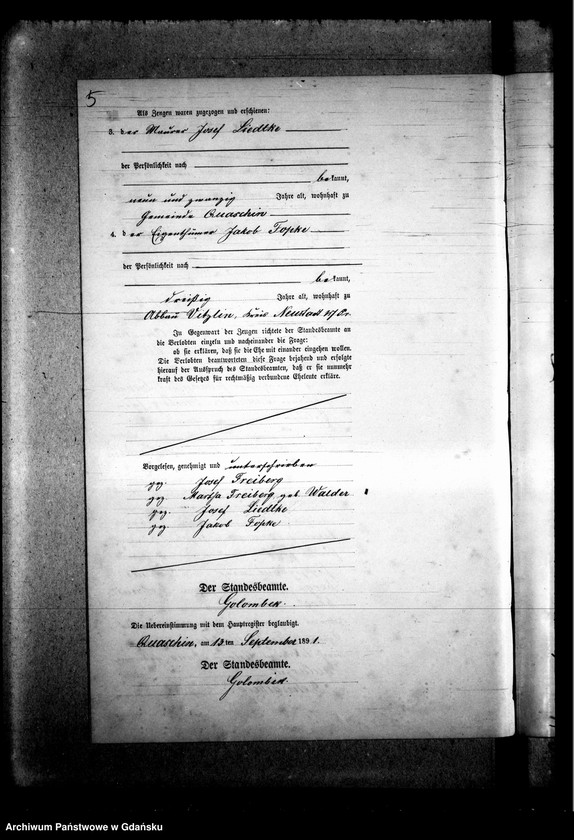 5
Als Zeugen waren zugezogen und erschienen:
3. der Maurer Josef Liedtke
der Persönlichkeit nach
bekannt,
neun und zwanzig Jahre alt, wohnhaft zu
Gemeinde Quaschin
4. der Eigenthümer Jakob Topke
der Persönlichkeit nach
bekannt,
dreißig Jahre alt, wohnhaft zu
Abbau Vitzlin, Kreis Neustadt
In Gegenwart der Zeugen richtete der Standesbeamte an
die Verlobten einzeln und nacheinander die Frage:
ob sie erklären, daß sie die Ehe mit einander eingehen wollen.
Die Verlobten beantworteten diese Frage bejahend und erfolgte
hierauf der Ausspruch des Standesbeamten, daß er sie nunmehr
kraft des Gesetzes für rechtmäßig verbundene Eheleute erkläre.
Vorgelesen, genehmigt und unterschrieben
gez. Josef Freiberg
gez. Martha Freiberg geb Walder
gez. Josef Liedtke
gez. Jakob Topke
Der Standesbeamte.
Golombek.
Die Uebereinstimmung mit dem Hauptregister beglaubigt.
Quaschin, am 13ten September 1891.
Der Standesbeamte.
Golombek.
Archiwum Państwowe w Gdańsku